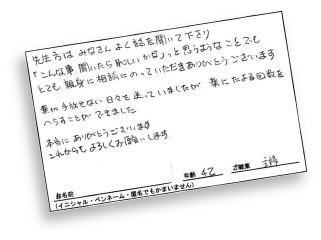 先生方は みなさん よく話を聞いて下さり
「こんな事 聞いたら 恥しいかな」っと 思うような ことでも
とても 親身に 相談に のって いただき ありがとうございます
薬が 手放せない 日々を 送って いましたが 薬に たよる回数を
へらすことが できました
本当に ありがとうございます
これからも よろしくお願いします
お名前
(イニシャル・ペンネーム・匿名でもかまいません)
年齢 42 ご職業 主婦